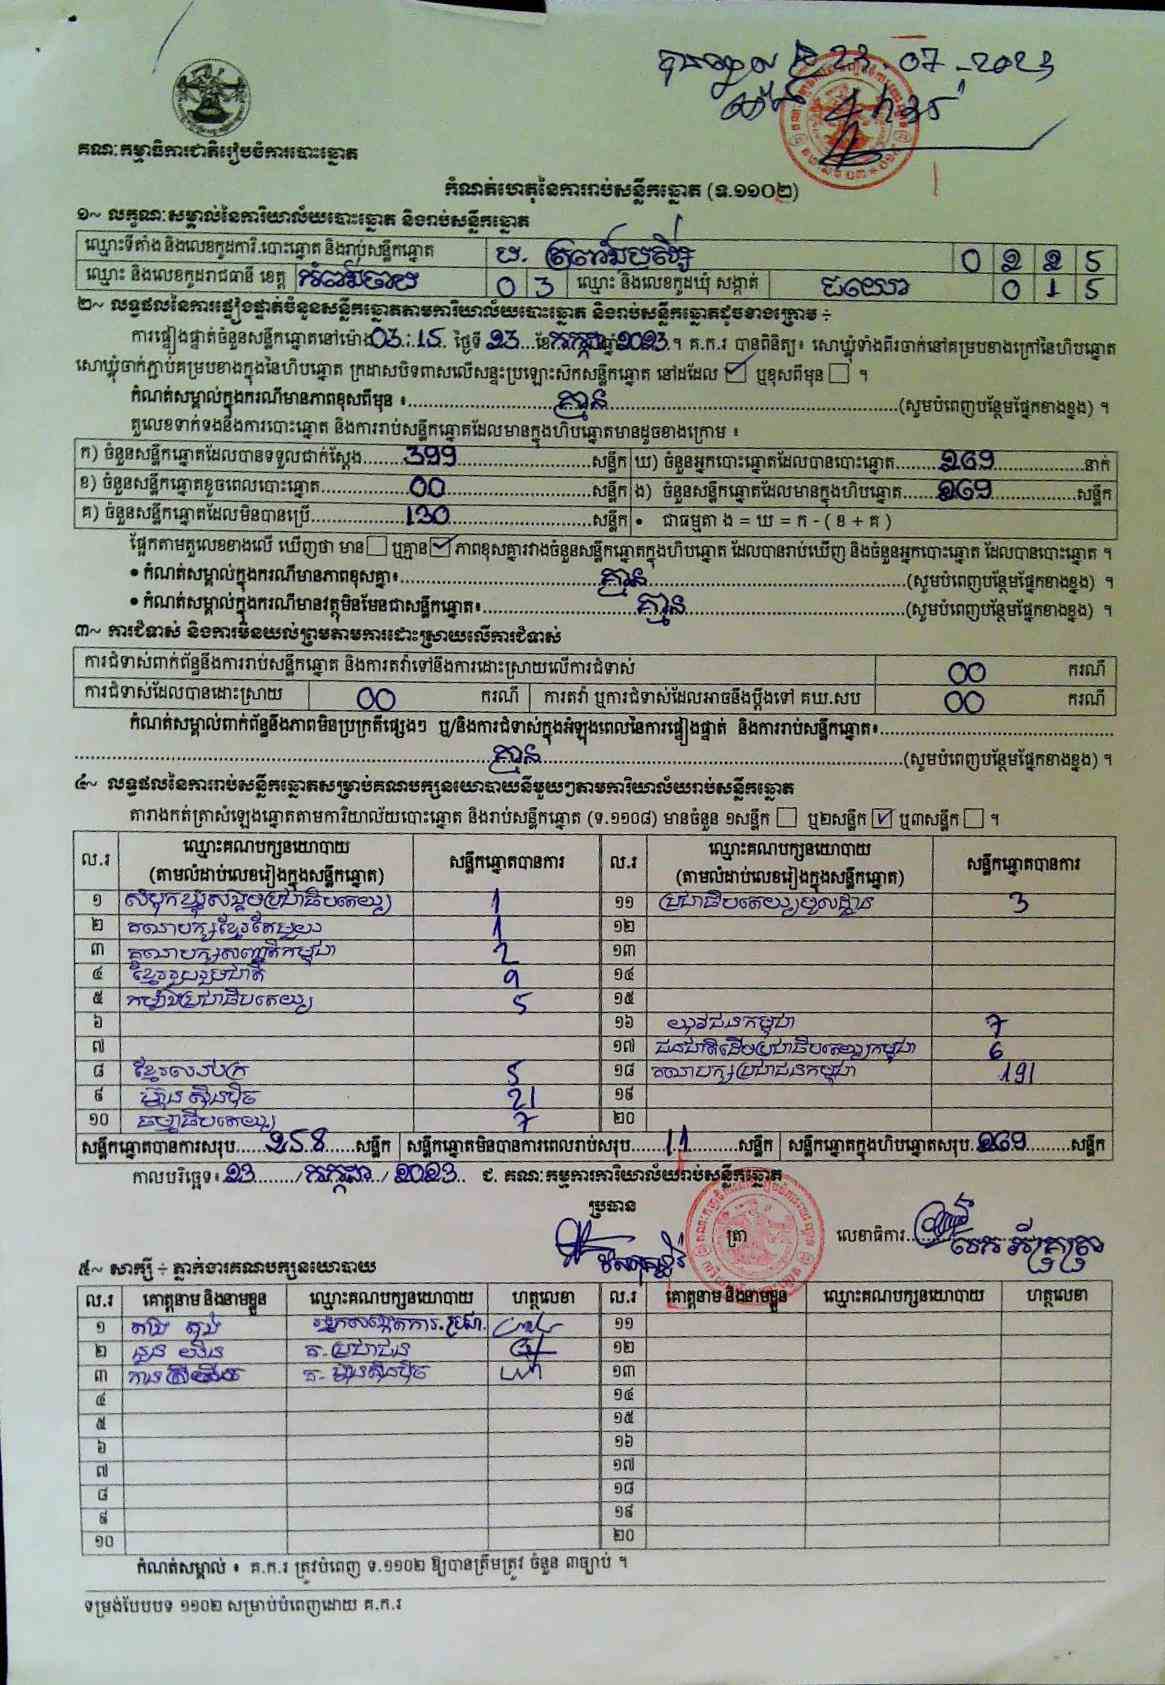 បានទទួល ថ្ងៃ 23.07.2023
គណៈកម្មាធិការជាតិរៀបចំការបោះឆ្នោត
កំណត់ហេតុនៃការរាប់សន្លឹកឆ្នោត (ទ.១១០២)
១~ លក្ខណៈសម្គាល់នៃការិយាល័យបោះឆ្នោត និងរាប់សន្លឹកឆ្នោត
ឈ្មោះទីតាំង និងលេខកូដការិ.បោះឆ្នោត និងរាប់សន្លឹកឆ្នោត 0 2 2 5
ឈ្មោះ និងលេខកូដរាជធានី ខេត្ត កំពង់ចាម 0 3 ឈ្មោះ និងលេខកូដឃុំ សង្កាត់ 0 1 5
២~ លទ្ធផលនៃការផ្ទៀងផ្ទាត់ចំនួនសន្លឹកឆ្នោតតាមការិយាល័យបោះឆ្នោត និងរាប់សន្លឹកឆ្នោតដូចខាងក្រោម ÷
ការផ្ទៀងផ្ទាត់ចំនួនសន្លឹកឆ្នោតនៅម៉ោង 03:15 ថ្ងៃទី 23 ខែ កក្កដា ឆ្នាំ 2023 ។ គ.ក.រ បានពិនិត្យ៖ សោឃ្លុំទាំងពីរចាក់នៅគម្របខាងក្រៅនៃហិបឆ្នោត
សោឃ្លុំចាក់ភ្ជាប់គម្របខាងក្នុងនៃហិបឆ្នោត ក្រដាសបិទពាសលើសន្ទះប្រឡោះស៊កសន្លឹកឆ្នោត នៅដដែល ☑ ឬខុសពីមុន ☐ ។
កំណត់សម្គាល់ក្នុងករណីមានភាពខុសពីមុន ៖ គ្មាន (សូមបំពេញបន្ថែមផ្នែកខាងខ្នង) ។
តួលេខទាក់ទងនឹងការបោះឆ្នោត និងការរាប់សន្លឹកឆ្នោតដែលមានក្នុងហិបឆ្នោតមានដូចខាងក្រោម ៖
ក) ចំនួនសន្លឹកឆ្នោតដែលបានទទួលជាក់ស្តែង 399 សន្លឹក ឃ) ចំនួនអ្នកបោះឆ្នោតដែលបានបោះឆ្នោត 269 នាក់
ខ) ចំនួនសន្លឹកឆ្នោតខូចពេលបោះឆ្នោត 00 សន្លឹក ង) ចំនួនសន្លឹកឆ្នោតដែលមានក្នុងហិបឆ្នោត 269 សន្លឹក
គ) ចំនួនសន្លឹកឆ្នោតដែលមិនបានប្រើ 130 សន្លឹក • ជាធម្មតា ង = ឃ = ក - ( ខ + គ )
ផ្អែកតាមតួលេខខាងលើ ឃើញថា មាន ☐ ឬគ្មាន ☑ ភាពខុសគ្នារវាងចំនួនសន្លឹកឆ្នោតក្នុងហិបឆ្នោត ដែលបានរាប់ឃើញ និងចំនួនអ្នកបោះឆ្នោត ដែលបានបោះឆ្នោត ។
• កំណត់សម្គាល់ក្នុងករណីមានភាពខុសគ្នា៖ គ្មាន (សូមបំពេញបន្ថែមផ្នែកខាងខ្នង) ។
• កំណត់សម្គាល់ក្នុងករណីមានវត្ថុមិនមែនជាសន្លឹកឆ្នោត៖ គ្មាន (សូមបំពេញបន្ថែមផ្នែកខាងខ្នង) ។
៣~ ការជំទាស់ និងការមិនយល់ព្រមតាមការដោះស្រាយលើការជំទាស់
ការជំទាស់ពាក់ព័ន្ធនឹងការរាប់សន្លឹកឆ្នោត និងការតវ៉ាទៅនឹងការដោះស្រាយលើការជំទាស់ 00 ករណី
ការជំទាស់ដែលបានដោះស្រាយ 00 ករណី ការតវ៉ា ឬការជំទាស់ដែលអាចនឹងប្តឹងទៅ គឃ.សប 00 ករណី
កំណត់សម្គាល់ពាក់ព័ន្ធនឹងភាពមិនប្រក្រតីផ្សេងៗ ឬ/និងការជំទាស់ក្នុងអំឡុងពេលនៃការផ្ទៀងផ្ទាត់ និងការរាប់សន្លឹកឆ្នោត៖
គ្មាន (សូមបំពេញបន្ថែមផ្នែកខាងខ្នង) ។
៤~ លទ្ធផលនៃការរាប់សន្លឹកឆ្នោតសម្រាប់គណបក្សនយោបាយនីមួយៗតាមការិយាល័យរាប់សន្លឹកឆ្នោត
តារាងកត់ត្រាសំឡេងឆ្នោតតាមការិយាល័យបោះឆ្នោត និងរាប់សន្លឹកឆ្នោត (ទ.១១០៨) មានចំនួន ១សន្លឹក ☐ ឬ២សន្លឹក ☑ ឬ៣សន្លឹក ☐ ។
ល.រ ឈ្មោះគណបក្សនយោបាយ (តាមលំដាប់លេខរៀងក្នុងសន្លឹកឆ្នោត) សន្លឹកឆ្នោតបានការ ល.រ ឈ្មោះគណបក្សនយោបាយ (តាមលំដាប់លេខរៀងក្នុងសន្លឹកឆ្នោត) សន្លឹកឆ្នោតបានការ
១ សំបុកឃ្មុំសង្គមប្រជាធិបតេយ្យ 1 ១១ ប្រជាធិបតេយ្យមូលដ្ឋាន 3
២ គណបក្សខ្មែរតែមួយ 1 ១២
៣ គណបក្សសញ្ជាតិកម្ពុជា 2 ១៣
៤ ខ្មែររួបរួមជាតិ 9 ១៤
៥ កម្លាំងប្រជាធិបតេយ្យ 5 ១៥
៦ ១៦ យុវជនកម្ពុជា 7
៧ ១៧ ជនជាតិដើមប្រជាធិបតេយ្យកម្ពុជា 6
៨ ខ្មែរឈប់ក្រ 5 ១៨ គណបក្សប្រជាជនកម្ពុជា 191
៩ ហ៊្វុនស៊ិនប៉ិច 21 ១៩
១០ ធម្មាធិបតេយ្យ 7 ២០
សន្លឹកឆ្នោតបានការសរុប 258 សន្លឹក សន្លឹកឆ្នោតមិនបានការពេលរាប់សរុប 11 សន្លឹក សន្លឹកឆ្នោតក្នុងហិបឆ្នោតសរុប 269 សន្លឹក
កាលបរិច្ឆេទ៖ 23 / កក្កដា / 2023 ជ. គណៈកម្មការការិយាល័យរាប់សន្លឹកឆ្នោត
ប្រធាន
ត្រា លេខាធិការ
៥~ សាក្សី ÷ ភ្នាក់ងារគណបក្សនយោបាយ
ល.រ គោត្តនាម និងនាមខ្លួន ឈ្មោះគណបក្សនយោបាយ ហត្ថលេខា ល.រ គោត្តនាម និងនាមខ្លួន ឈ្មោះគណបក្សនយោបាយ ហត្ថលេខា
១ ១១
២ គ. ប្រជាជន ១២
៣ គ. ហ៊្វុនស៊ិនប៉ិច ១៣
៤ ១៤
៥ ១៥
៦ ១៦
៧ ១៧
៨ ១៨
៩ ១៩
១០ ២០
កំណត់សម្គាល់ ៖ គ.ក.រ ត្រូវបំពេញ ទ.១១០២ ឱ្យបានត្រឹមត្រូវ ចំនួន ៣ច្បាប់ ។
ទម្រង់បែបបទ ១១០២ សម្រាប់បំពេញដោយ គ.ក.រ